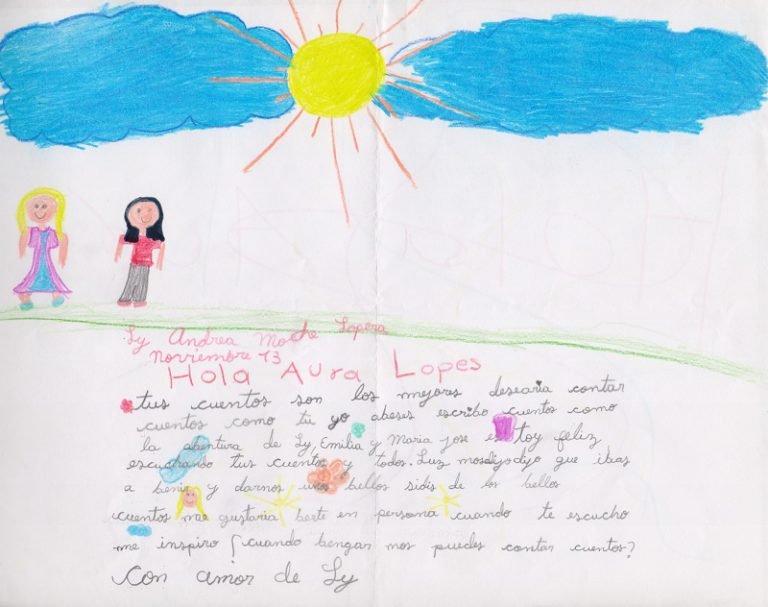 Ly Andrea Moche Lopera
Noviembre 13
Hola Aura Lopes
tus cuentos son los mejores desearia contar
cuentos como tu yo abeses escribo cuentos como
la abentura de Ly, Emilia y Maria jose estoy feliz
escuchando tus cuentos y todos. Luz mosdijodijo que ibas
a benir y darnos unos bellos sidis de los bellos
cuentos me gustaria berte en persona cuando te escucho
me inspiro ¿cuando bengan mos puedes contar cuentos?
Con amor de Ly